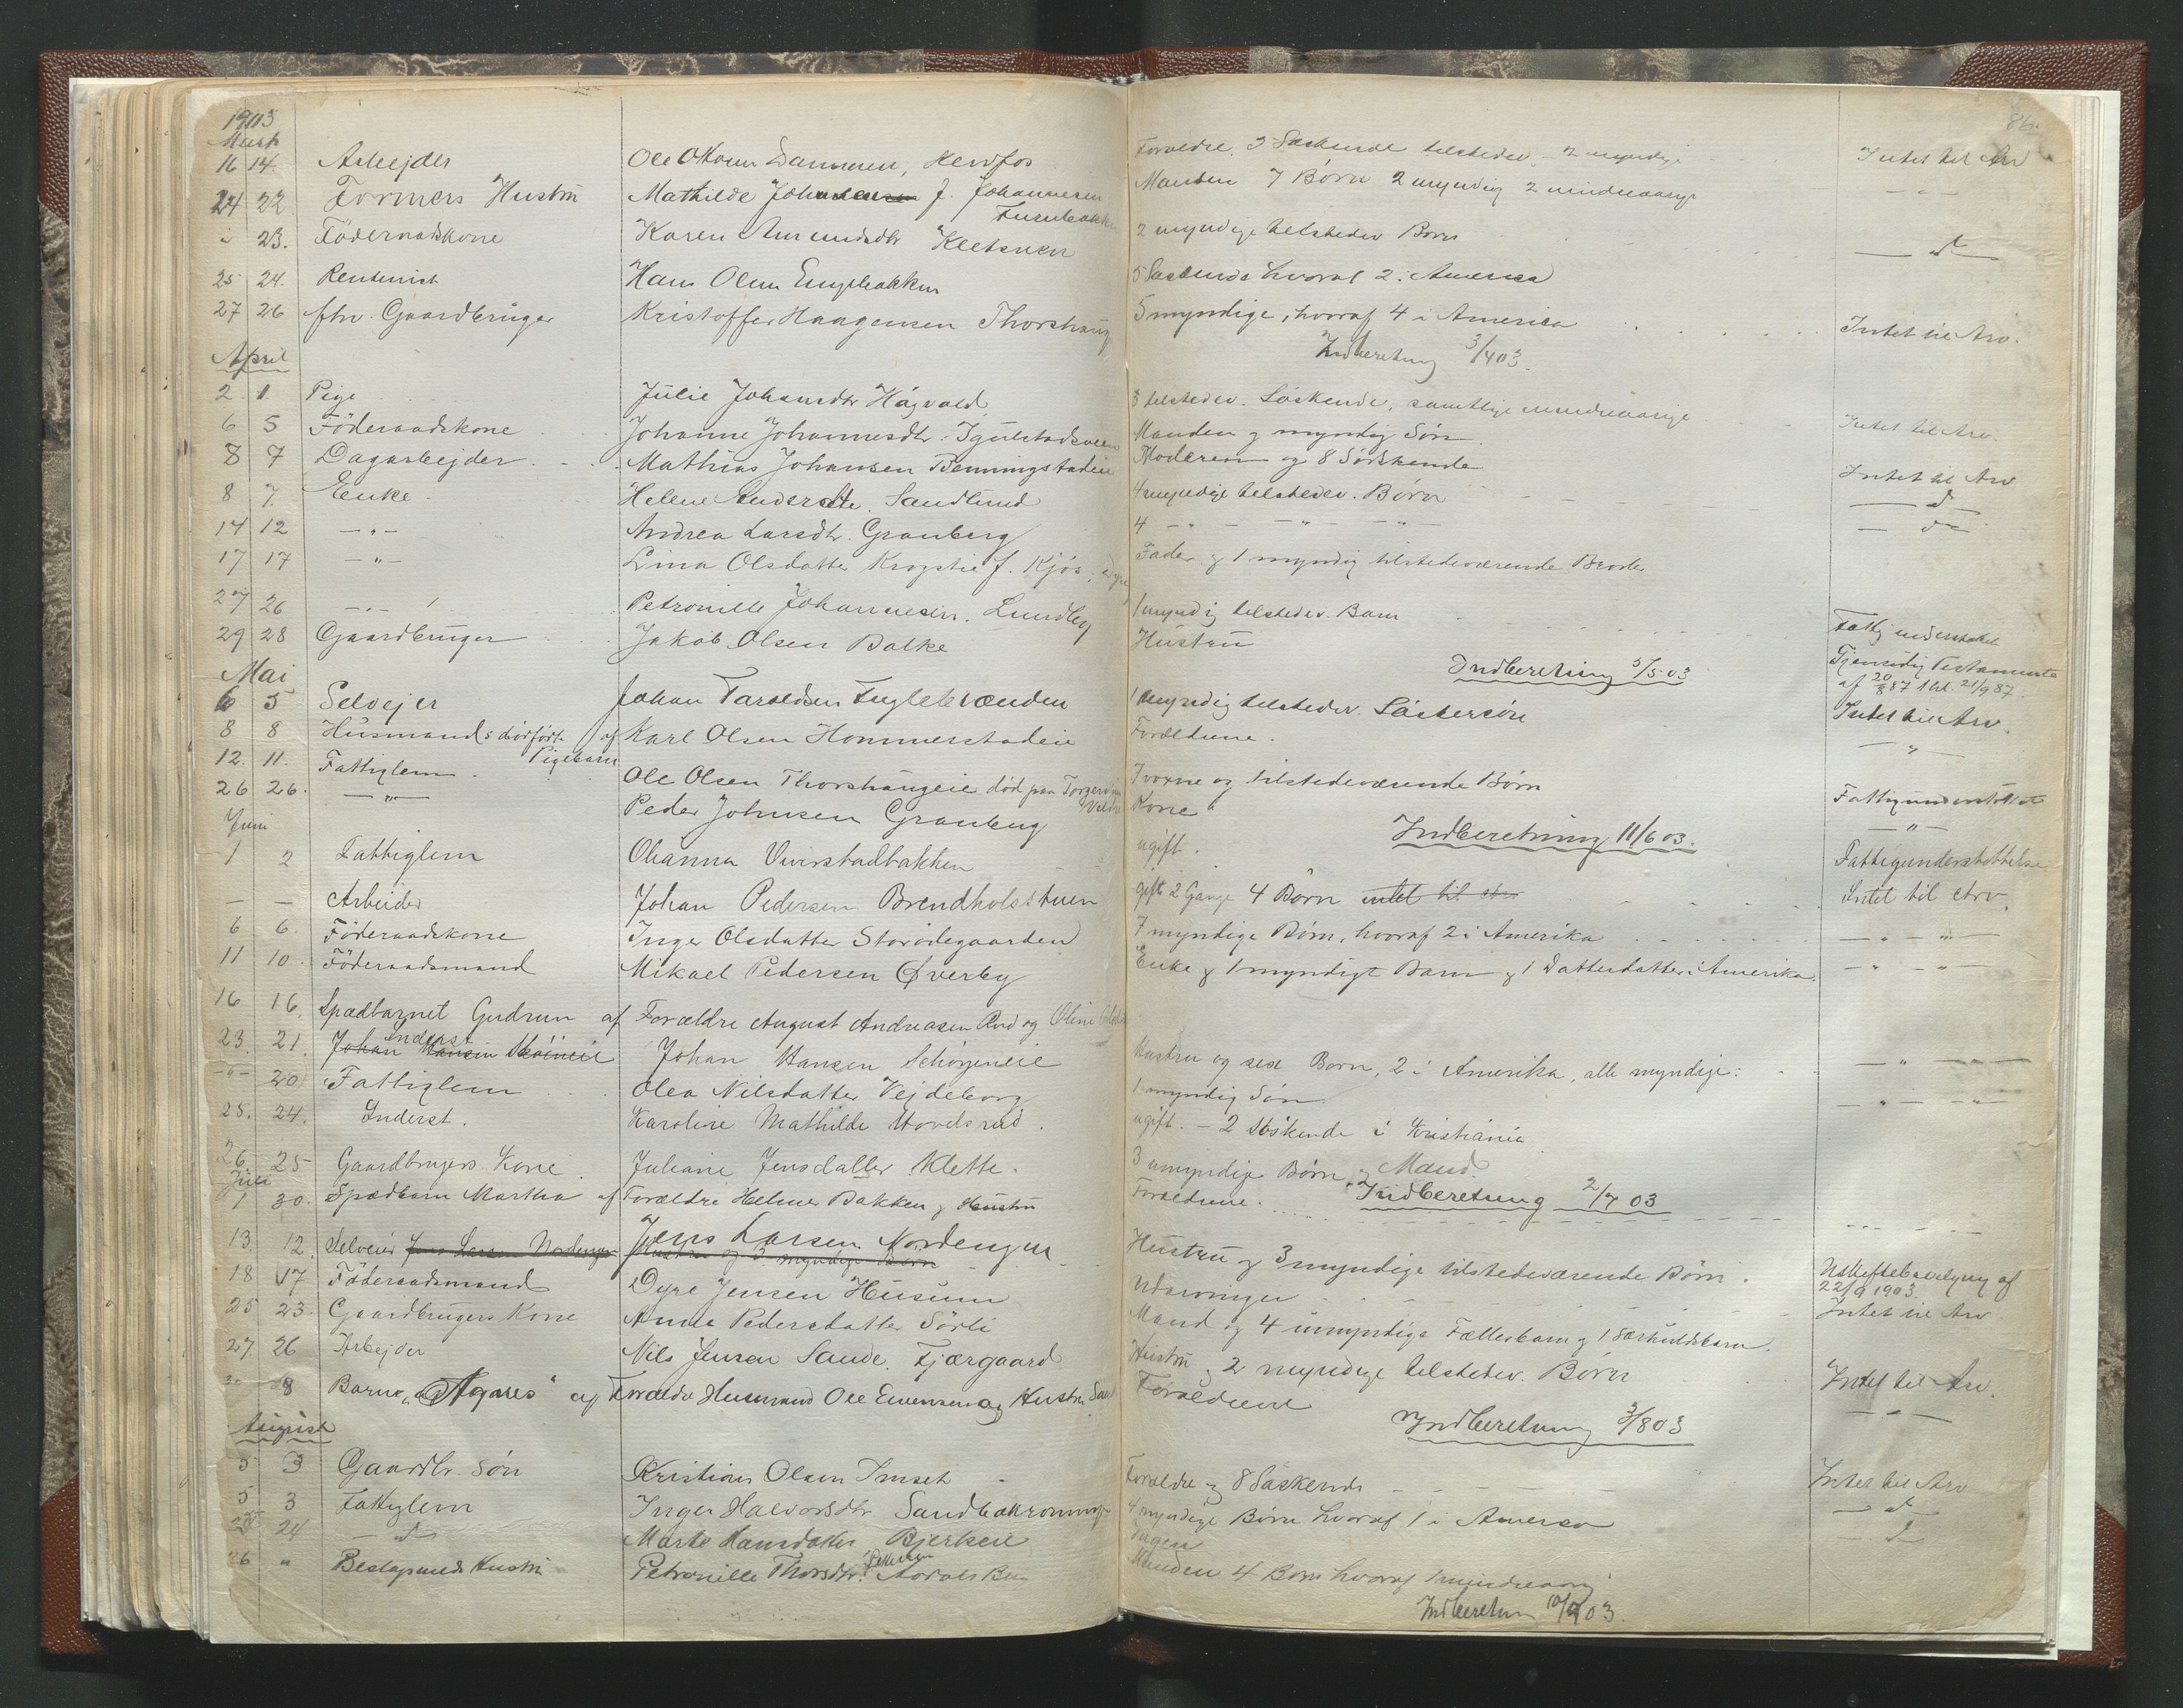 1903
86.
Marts
16 14. Arbejder Ole Hervfos Forældre, 3 Søskende tilstedev. 2 myndige Intet til Arv
24 22. Formers Hustru Mathilde Johansen f. Johannesen Manden 7 Børn 2 myndig 2 mindreaarige — " —
Furubakken
" 23. Föderaadskone Karen Amundsdtr Kletsveen 2 myndige tilstedev Børn — d —
25 24. Rentenist Hans Olsen Engebakken 5 Søskende hvoraf 2 i America
27 26 fhv. Gaardbruger Kristoffer Haagensen Thorshaug 5 myndige, hvoraf 4 i America Intet til Arv.
Indberetning 3/4 03.
April
2. 1. Pige Julie Johansdtr Hågvald 3 tilstedev. Søskende, samtlige mindreaarige Intet til Arv.
6 5 Föderaadskone Johanne Johannesdtr. Igulstadsveen Manden og myndig Søn
8 7 Dagarbejder Mathias Johansen Benningstadeie Moderen og 8 Sødskende Intet til Arv
8 7. Enke Helene Andersdtr. Sandlund 4 myndige tilstedev. Børn — d —
14 12 — " — Andrea Larsdtr. Granberg 4 — " — — " — — " — — d —
17 17 — " — Lina Olsdatter Krogstie f. Kjös Fader og 1 myndig tilstedeværende Broder
27 26 — " — Petronille Johannesen. Lundby 1 myndig tilstedev. Barn Fattigunderstøttet
29 28 Gaardbruger Jakob Olsen Balke Hustru Gjensidig Testamente
af 20/8 87 thl. 21/9 87.
Indberetning 3/5 03
Mai
6 5 Selvejer Johan Taraldsen Fuglebrænden 1 myndig tilstedev. Søstersøn Intet til Arv.
8 8 Husmands dödfödt Pigebarn af Karl Olsen Hommerstadeie Forældrene. — " —
12. 11. Fattiglem. Ole Olsen Thorshaugeie död paa 7 voxne og tilstedeværende Børn Fattigunderstöttet
26 26. — " — Peder Johnsen Granberg Kone — " —
Indberetning 11/6 03.
Juni
1 2 Fattiglem Ohanna Vinrstadbakken ugift. Fattigunderstöttelse
— — Arbeider Johan Pedersen Brendholsstuen gift 2 Gange 4 Børn intet til Arv Intet til Arv.
6 6. Föderaadskone Inger Olsdatter Storödegaarden 7 myndige Børn, hvoraf 2 i Amerika — " — " —
11 10. Föderaadsmand Mikael Pedersen Øverby Enke og 1 myndigt Barn og 1 Datterdatter i Amerika. — " — " —
16 16. Spædbarnet Gudrun af Forældre August Andreasen Rud og Oline
23. 21. Johan Hansen Inderst Johan Hansen Schöyeneie Hustru og sex Børn, 2 i Amerika, alle myndige: — " — —
— " — 20 Fattiglem Olea Nilsdatter Vejdeborg 1 myndig Søn — " — —
25. 24. Inderst. Karoline Mathilde Hovelsrud. ugift. — 2 Söskende i Kristiania
26 25 Gaardbrugers Kone Juliane Jensdatter Klette. 3 umyndige Børn og Mand
Juli
1 30. Spædbarn Martha af Forældre Helmer Bakken og Hustru Forældrene. Indberetning 2/7 03
13. 12. Selveier Jens Larsen Nordengen Jens Larsen Nordengen Hustru og 3 myndige tilstedeværende Børn. Uskiftebevilgning af
Hustru og 3 myndige Børn 22/9 1903.
18 17 Föderaadsmand Dyre Jensen Husum Udarvinger Intet til Arv
25 23. Gaardbrugers Kone Anna Pedersdatter Sörli Mand og 4 umyndige Fællesbarn og 1 særkuldsbarn.
27 26 Arbejder Nils Jensen Sande. Fjærgaard Hustru og 2 myndige tilstedev. Børn Intet til Arv.
8 Barnet "Agnes" af Forældre Husmand Ole Evensen og Hustru Forældrene — " —
Indberetning 3/8 03
August
5 3 Gaardbr. Sön Kristian Olsen Imset Forældre og 8 Søskende Intet til Arv
5 3 Fattiglem Inger Halvorsdtr 4 myndige Børn hvoraf 1 i America — d —
24 — d — Marte Hansdatter Bjerkeie Ingen d
26 " Hustru Petronille Thorsdtr. Manden 4 Børn hvoraf 1 mindreaarig
Indberetning 10/9 03.